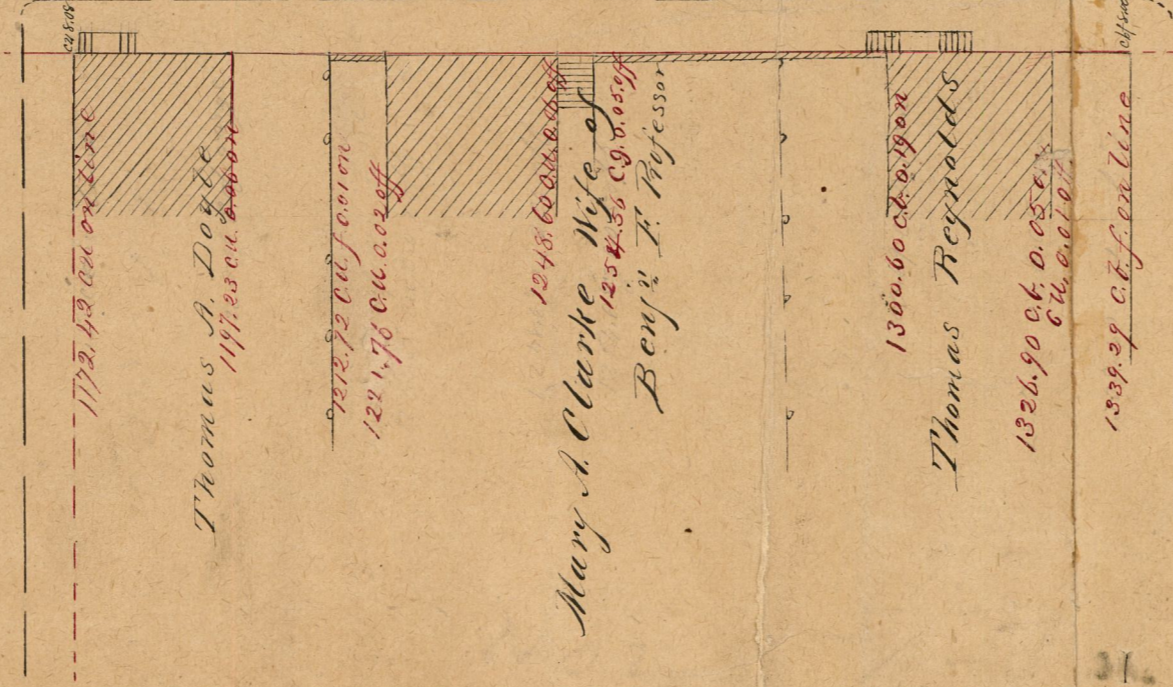 1172.42 c.u. on line
Thomas A. Doyle
1197.23 c.u. 0.06 on
1212.72 c.u.f. 0.01 on
1221.76 c.u. 0.02 off
1248.60 c.u. 0.06 off
Mary A. Clarke Wife of
1254.56 c.g. 0.05 off
Benjn F. Professor
1300.60 c.b. 0.19 on
Thomas Reynolds
1326.90 c.b. 0.05
c.u. 0.01 off
1339.29 c.b.f. on line